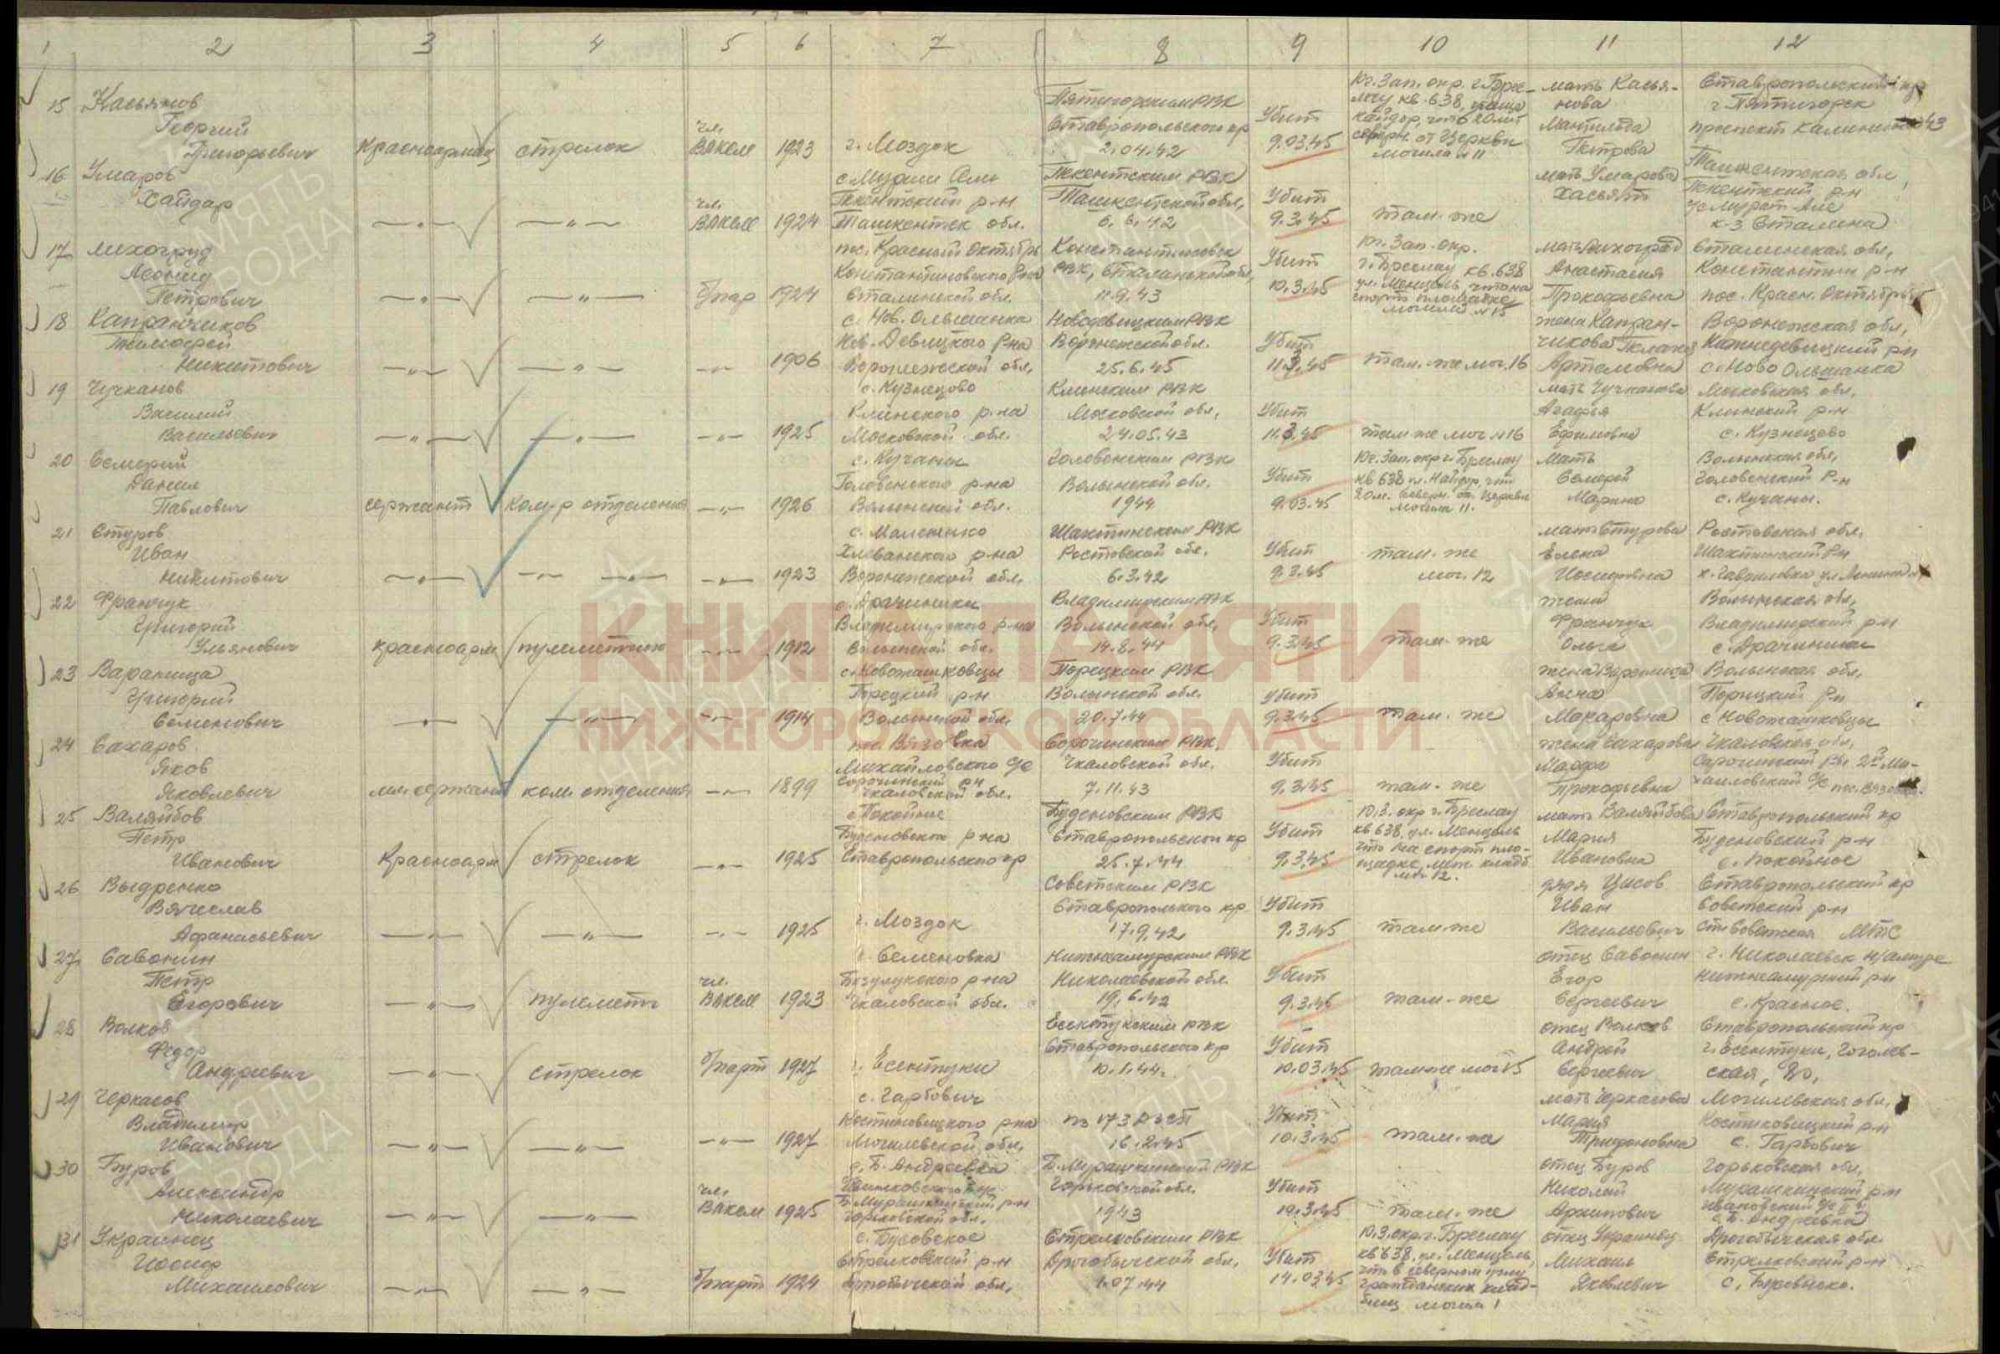 1 2 3 4 5 6 7 8 9 10 11 12
15 Касьянов Георгий Григорьевич красноармеец стрелок чл. ВЛКСМ 1923 г. Моздок Пятигорским РВК Ставропольского кр 2.04.42 Убит 9.03.45 Юг. Зап. окр. г. Бреслау кв. 638 могила №11 мать Касьянова Петрова Ставропольский кр г. Пятигорск проспект Калинина 43
16 Умаров Хайдар —"— —"— чл. ВЛКСМ 1924 Пскентский р-н Ташкентск обл. Пскентским РВК Ташкентской обл. 6.6.42 Убит 9.3.45 там-же мать Умарова Хасьят Ташкентская обл, Пскентский р-н к-з Сталина
17 Лихогруд Леонид Петрович —"— —"— б/пар 1924 пос. Красный Октябрь Константиновского р-на Сталинской обл. Константиновск РВК, Сталинской обл, 11.9.43 Убит 10.3.45 Юг. Зап. окр. г. Бреслау кв. 638 ул. Менцель, что на спорт площадке могила №15 мать Лихоград Анастасия Прокофьевна Сталинская обл, Константин р-н пос. Красн. Октябрь
18 Капранчиков Тимофей Никитович —"— —"— —"— 1906 с. Нов. Ольшанка Ниж. Девицкого р-на Воронежской обл, Н.Девицким РВК Воронежской обл. 25.6.45 Убит 11.3.45 там-же мог. 16 жена Капранчикова Артамовна Воронежская обл, Нижнедевицкий рн с. Ново Ольшанка
19 Чучканов Василий Васильевич —"— —"— —"— 1925 с. Кузнецово Клинского р-на Московской обл. Клинским РВК Московской обл, 24.05.43 Убит 11.3.45 там-же мог. №16 мать Чучканова Агафья Ефимовна Московская обл, Клинский р-н с. Кузнецово
20 Семерий Данил Павлович сержант ком-р отделения —"— 1926 с. Кучаны Головенского р-на Волынской обл. Головенским РВК Волынской обл. 1944 Убит 9.03.45 Юг. Зап. окр г. Бреслау кв 638 20 м. северн. от Церкви могила 11. Мать Семерей Марина Волынская обл, Головенский р-н с. Кучаны.
21 Стуров Иван Никитович —"— —"— —"— —"— 1923 с. Малененко Хлеванского р-на Воронежской обл, Шахтинским РВК Ростовской обл. 6.3.42 Убит 9.3.45 там-же мог. 12 мать Стурова Елена Иосифовна Ростовская обл. Шахтинский Р-н х. Гавриловка ул Ленина
22 Франчук Григорий Ульянович красноарм пулеметчик —"— 1912 с. Драчиники Владимирского р-на Волынской обл. Владимирским РВК Волынской обл, 14.8.44 Убит 9.3.45 там-же жена Франчук Ольга Волынская обл, Владимирский р-н с. Драчиники
23 Вараница Григорий Семенович —"— —"— —"— 1914 с. Новоташковцы Порецкий р-н Волынской обл. Порецким РВК Волынской обл. 20.7.44 Убит 9.3.45 там-же жена Вараница Анна Макаровна Волынская обл, Порицкий р-н с Новоташковцы
24 Сахаров Яков Яковлевич мл. сержант ком. отделения —"— 1899 пос. Вязовка Михайловского с/с Сорочинский рн Чкаловской обл. Сорочинским РВК Чкаловской обл. 7.11.43 Убит 9.3.45 там-же жена Сахарова Марфа Прокофьевна Чкаловская обл, Сорочинский р-н Михайловский с/с пос. Вязовка.
25 Валяйбов Петр Иванович Красноарм стрелок —"— 1925 с Покойное Буденовского р-на Ставропольского кр Буденовским РВК Ставропольского кр 25.7.44 Убит 9.3.45 Ю.З. окр г. Бреслау кв 638, ул. Менцель что на спорт площадке, мог. 12. мать Валяйбова Мария Ивановна Ставропольский кр Буденовский р-н с. Покойное
26 Выдренко Вячеслав Афанасьевич —"— —"— —"— 1925 г. Моздок Советским РВК Ставропольского кр 17.9.42 Убит 9.3.45 там-же дядя Цысов Иван Васильевич Ставропольский кр Советский р-н ст. Советская МТС
27 Савонин Петр Егорович —"— пулеметч чл. ВЛКСМ 1923 с. Семеновка Бузулукского р-на Чкаловской обл. Нижнеамурским РВК Николаевской обл. 19.6.42 Убит 9.3.45 там-же отец Савонин Егор Сергеевич г. Николаевск н/амуре Нижнеамурский р-н с. Красное.
28 Волков Федор Андреевич —"— стрелок б/парт 1927 г. Есентуки Есентукским РВК Ставропольского кр 10.1.44. Убит 10.03.45 там-же мог 15 отец Волков Андрей Сергеевич Ставропольский кр г. Есентуки, Гоголевская,
29 Черкасов Владимир Иванович —"— —"— —"— 1927 с. Гарбович Костюковицкого р-на Могилевской обл. по 173 РВСП 16.2.45 Убит 10.3.45 там-же мать Черкасова Мария Трифоновна Могилевская обл, Костюковицкий р-н с. Гарбович
30 Буров Александр Николаевич —"— —"— чл. ВЛКСМ 1925 д. Б. Андреевка Ивановского с/с Б. Мурашкинский р-н Горьковской обл. Б. Мурашкинский РВК Горьковской обл. 1943 Убит 10.3.45 там-же отец Буров Николай Архипович Горьковская обл, Мурашкинский р-н Ивановский с/с с. Б. Андреевка
31 Украинец Иосиф Михайлович —"— —"— б/парт 1924 с. Бусовское Стрелковский р-н Дрогобычской обл, Стрелковским РВК Дрогобычской обл, 1.07.44 Убит 14.03.45 Ю.З. окр. г. Бреслау кв 638, ул. Менцель, что в северном углу гражданских кладбищ могила 1 отец Украинец Михаил Яковлевич Дрогобычская обл Стрелковский р-н с. Бусовыско.
КНИГА ПАМЯТИ
НИЖЕГОРОДСКОЙ ОБЛАСТИ
ПАМЯТЬ НАРОДА